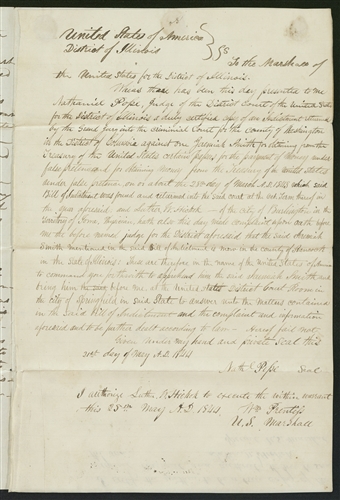 United States of America
District of Illinois } ss
To the Marshal of
the United States for the District of Illinois.
Whereas there has been this day presented to me
Nathaniel Pope, Judge of the District Court of the United States
for the District of Illinois a duly certified copy of an Indictment returned
by the Grand Jury into the Criminal Court for the County of Washington
in the District of Columbia against one Jeremiah Smith for obtaining from the
Treasury of the United States certain papers for the purpose of money under
false pretenses and for obtaining money from the Treasury of the United States
under false pretenses on or about the day of March A.D. 1843 which said
Bill of Indictment was found and returned into the said court at the term
the year aforesaid and Luther R. Hickok of the city of Washington in the
made also this day complaint upon oath before
me the before named judge for the District aforesaid that the said Jeremiah
Smith mentioned in the said Bill of Indictment is now in the county of Hancock
in the State of Illinois: These are therefore in the name of the United States of America
to command you forthwith to apprehend him the said Jeremiah Smith and
bring him before me at the United States District Court Room in
the city of Springfield in said State to answer unto the matters contained
in the said Bill of Indictment and the complaint and information
aforesaid and to be further dealt according to law — Hereof fail not.
Given under my hand and private seal this
day of May A.D. 1844
Nath. Pope Seal
I authorize Luther R. Hickok to execute the within warrant
this 25th May A.D. 1844. Wm Prentiss
U.S. Marshall